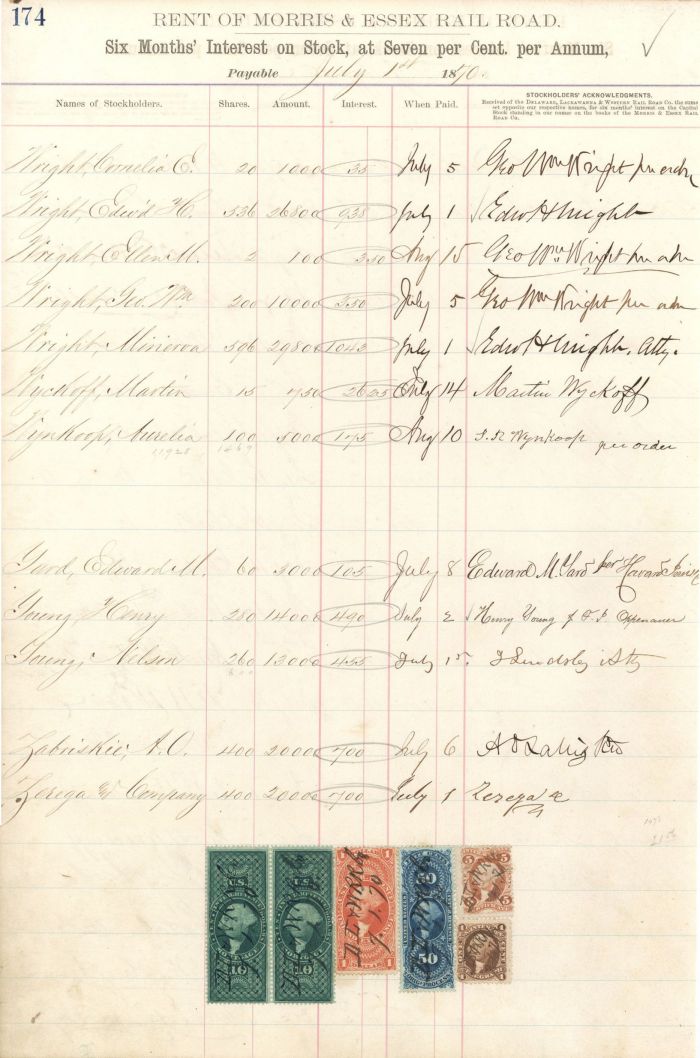 174
RENT OF MORRIS & ESSEX RAIL ROAD.
Six Months' Interest on Stock, at Seven per Cent. per Annum,
Payable July 1st 1870.
Names of Stockholders. Shares. Amount. Interest. When Paid. STOCKHOLDERS' ACKNOWLEDGMENTS.
Received of the DELAWARE, LACKAWANNA & WESTERN RAIL ROAD Co. the sums
set opposite our respective names, for six months' interest on the Capital
Stock standing in our names on the books of the MORRIS & ESSEX RAIL
ROAD Co.
Wright, Cornelia E. 20 1000 35 July 5 Geo Wm Wright per order
Wright, Edw'd H. 536 26800 938 July 1 Edw H Wright
Wright, Ellen M. 2 100 3 50 Aug 15 Geo Wm Wright per
Wright, Geo. Wm 200 10000 350 July 5 Geo Wm Wright per
Wright, Minerva 596 29800 1043 July 1 Edw H Wright, Atty.
Wyckoff, Martin 15 750 26 25 July 14 Martin Wyckoff
Wynkoop, Aurelia 100 5000 175 Aug 10 Wynkoop per order
Yard, Edward M. 60 3000 105 July 8 Edward M. Yard per
Young Henry 280 14000 490 July 2 Henry Young
Young, Nelson 260 13000 455 July 15. Lindsley Atty
Zabriskie, A.O. 400 20000 700 July 6
Zerega & Company 400 20000 700 July 1 Zerega &
U.S.
10 10 1 1 50 50 5 5 1 1